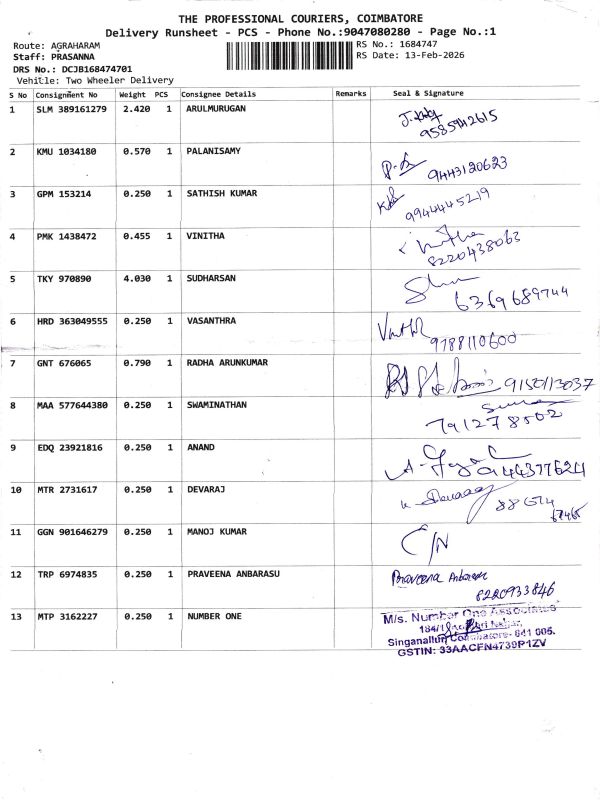 THE PROFESSIONAL COURIERS, COIMBATORE
Delivery Runsheet - PCS - Phone No.:9047080280 - Page No.:1
Route: AGRAHARAM RS No.: 1684747
Staff: PRASANNA RS Date: 13-Feb-2026
DRS No.: DCJB168474701
Vehitle: Two Wheeler Delivery
S No Consignment No Weight PCS Consignee Details Remarks Seal & Signature
1 SLM 389161279 2.420 1 ARULMURUGAN
9585942615
2 KMU 1034180 0.570 1 PALANISAMY
9443120623
3 GPM 153214 0.250 1 SATHISH KUMAR
9944445219
4 PMK 1438472 0.455 1 VINITHA Vinitha
8220438063
5 TKY 970890 4.030 1 SUDHARSAN
6369689744
6 HRD 363049555 0.250 1 VASANTHRA
9788110600
7 GNT 676065 0.790 1 RADHA ARUNKUMAR 9150113037
8 MAA 577644380 0.250 1 SWAMINATHAN
791278502
9 EDQ 23921816 0.250 1 ANAND
944377624
10 MTR 2731617 0.250 1 DEVARAJ
67465
11 GGN 901646279 0.250 1 MANOJ KUMAR C/N
12 TRP 6974835 0.250 1 PRAVEENA ANBARASU Praveena Anbarasu
8220933846
13 MTP 3162227 0.250 1 NUMBER ONE M/s. Number One Associates
Singanallur Coimbatore- 641 005.
GSTIN: 33AACFN4739P1ZV